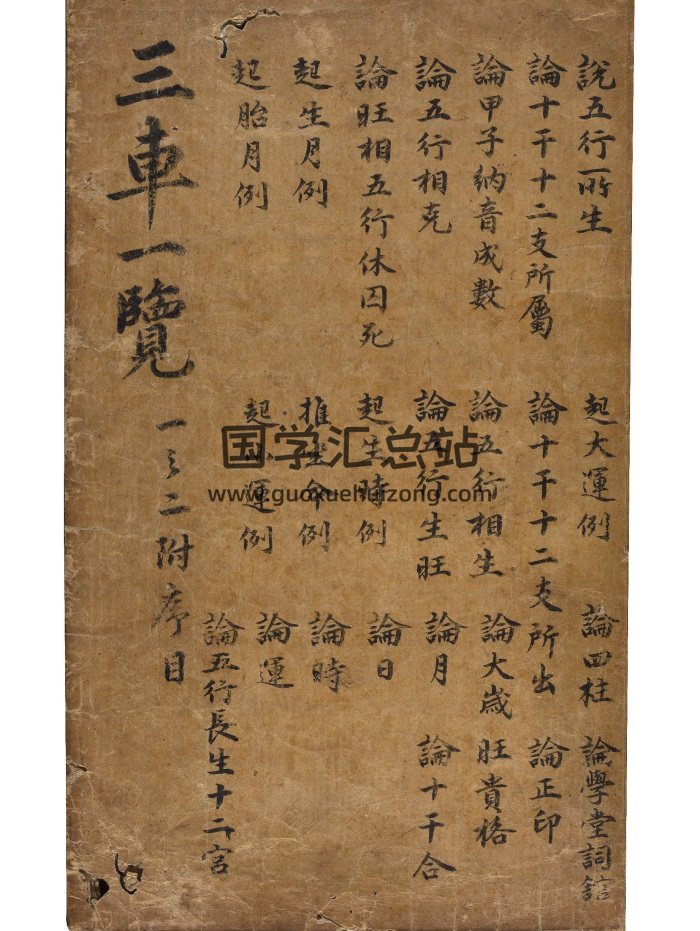 說五行所生
起大運例
論四柱
論學堂詞舘
論十干十二支所屬
論十干十二支所出
論正印
論甲子納音成數
論五行相生
論大歳
旺貴格
論五行相克
論五行生旺
論月
論十干合
論旺相五行休囚死
起生時例
論日
起生月例
推坐命例
論時
起胎月例
起小運例
論運
論五行長生十二宮
三車一覽
一之二附序目
国学汇总站
www.guoxuehuizong.com